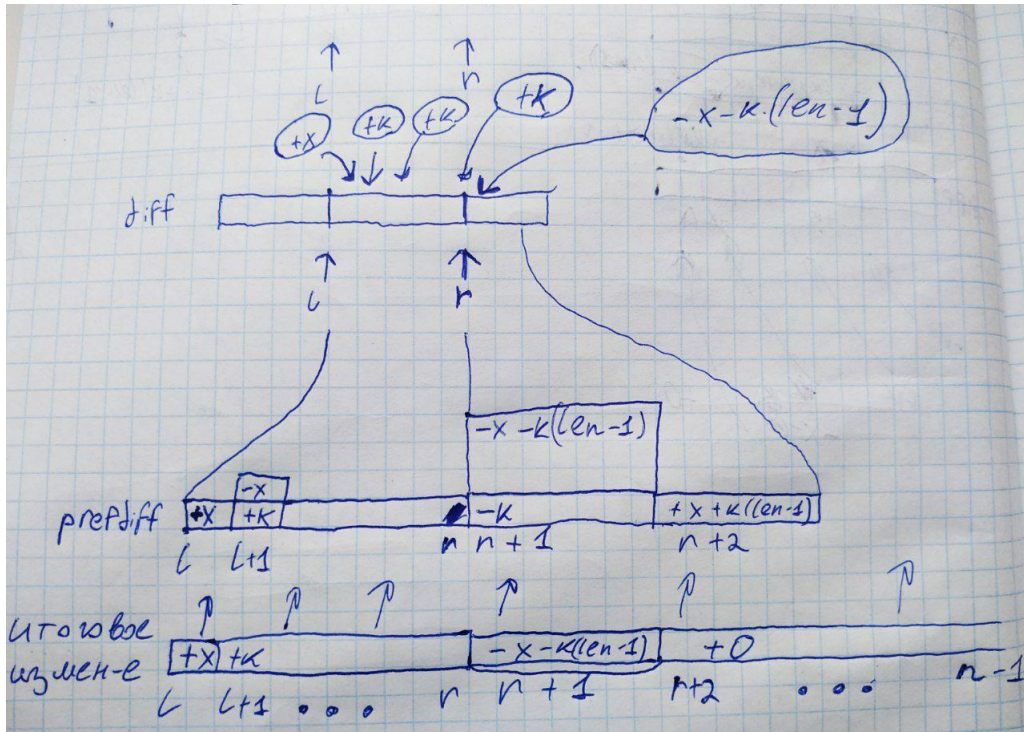 l r
+x +k +k +k -x-k·(len-1)
diff
l r
-x-k(len-1)
-x
prefdiff +x +k -k +x+k(len-1)
l l+1 r r+1 r+2
итоговое +x +k -x-k(len-1) +0
измен-е
l l+1 ... r r+1 r+2 ... n-1